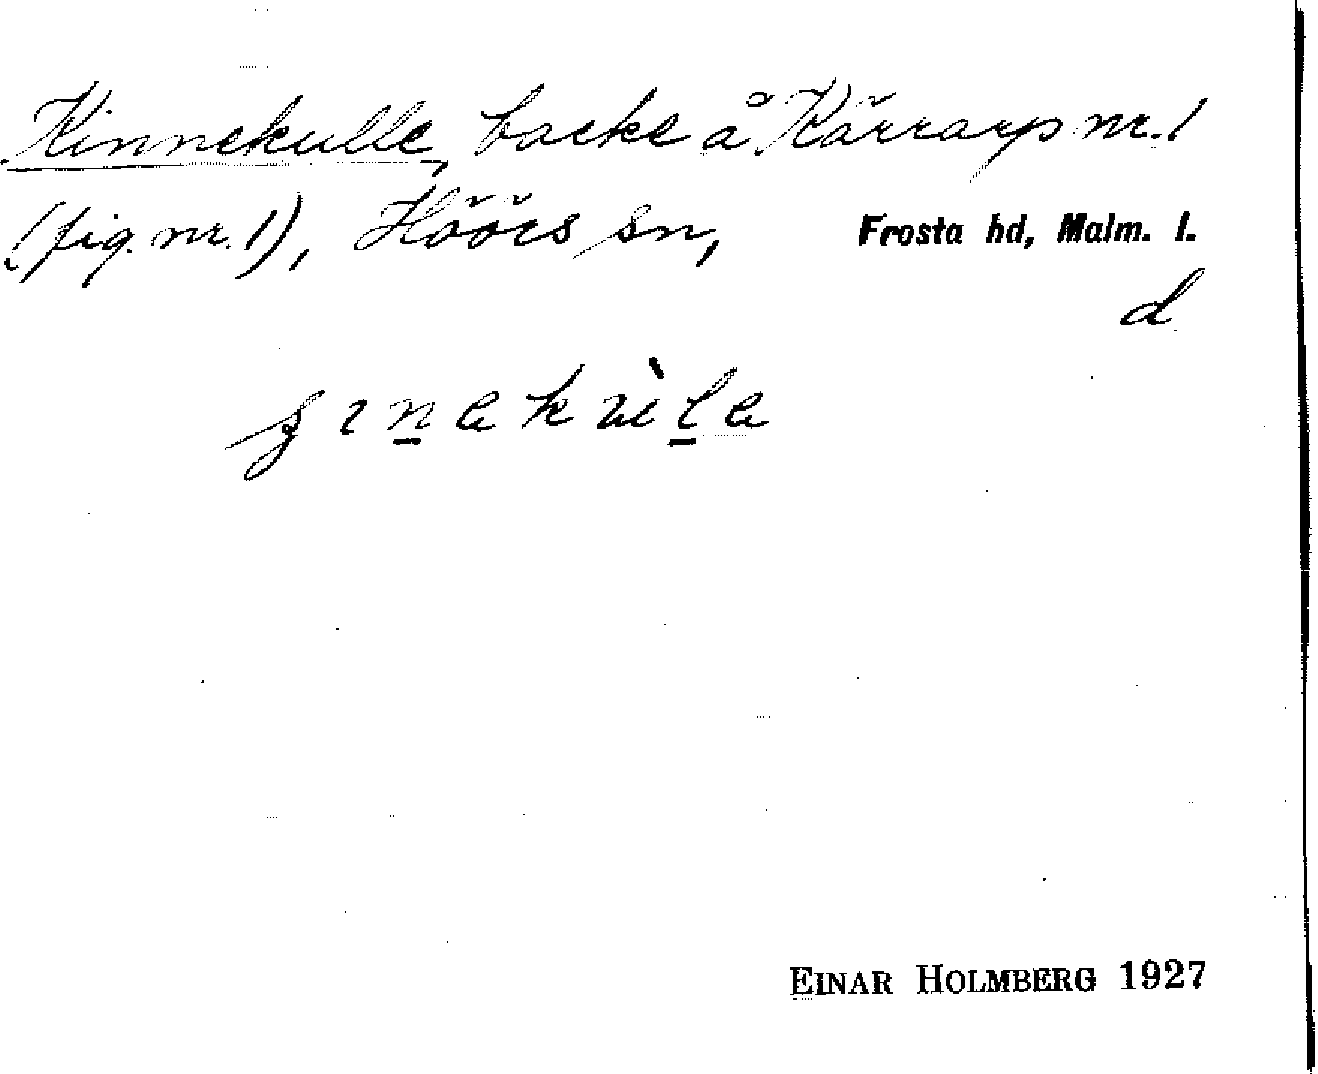 Kinnekulle, backe å Kärrarp nr. 1
(fig. nr. 1), Höörs sn, Frosta hd, Malm. l.
d
EINAR HOLMBERG 1927